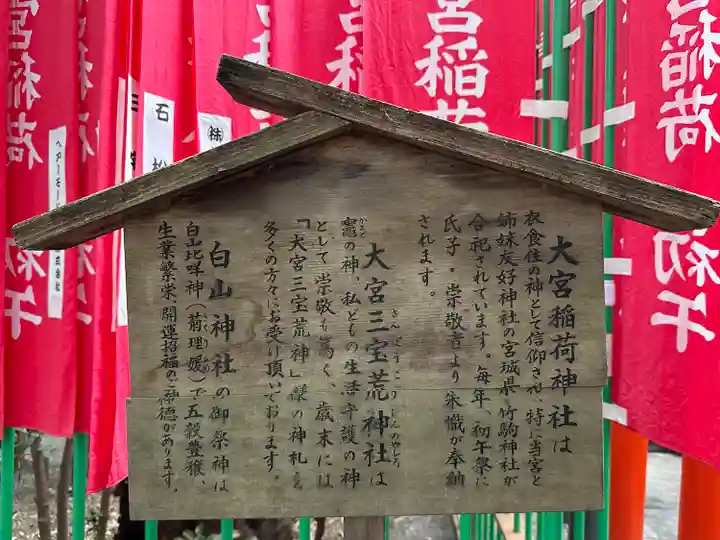 大宮稲荷神社は
衣食住の神として信仰させ、特に当宮と
姉妹友好神社の宮城県・竹駒神社が
合祀されています。毎年、初午祭に
氏子・崇敬者より朱幟が奉納
されます。
大宮三宝荒神社は
さんぽうこうじんのやしろ
竈の神、私どもの生活守護の神
かまど
として崇敬も篤く、歳末には
「大宮三宝荒神」様の神札を
多くの方々にお受け頂いております。
白山神社の御祭神は
白山比咩神(菊理媛)で五穀豊穣、
くくりひめ
生業繁栄、開運招福のご神徳があります。
宮稲荷
宮稲荷
初午
宮稲荷
石
㈱